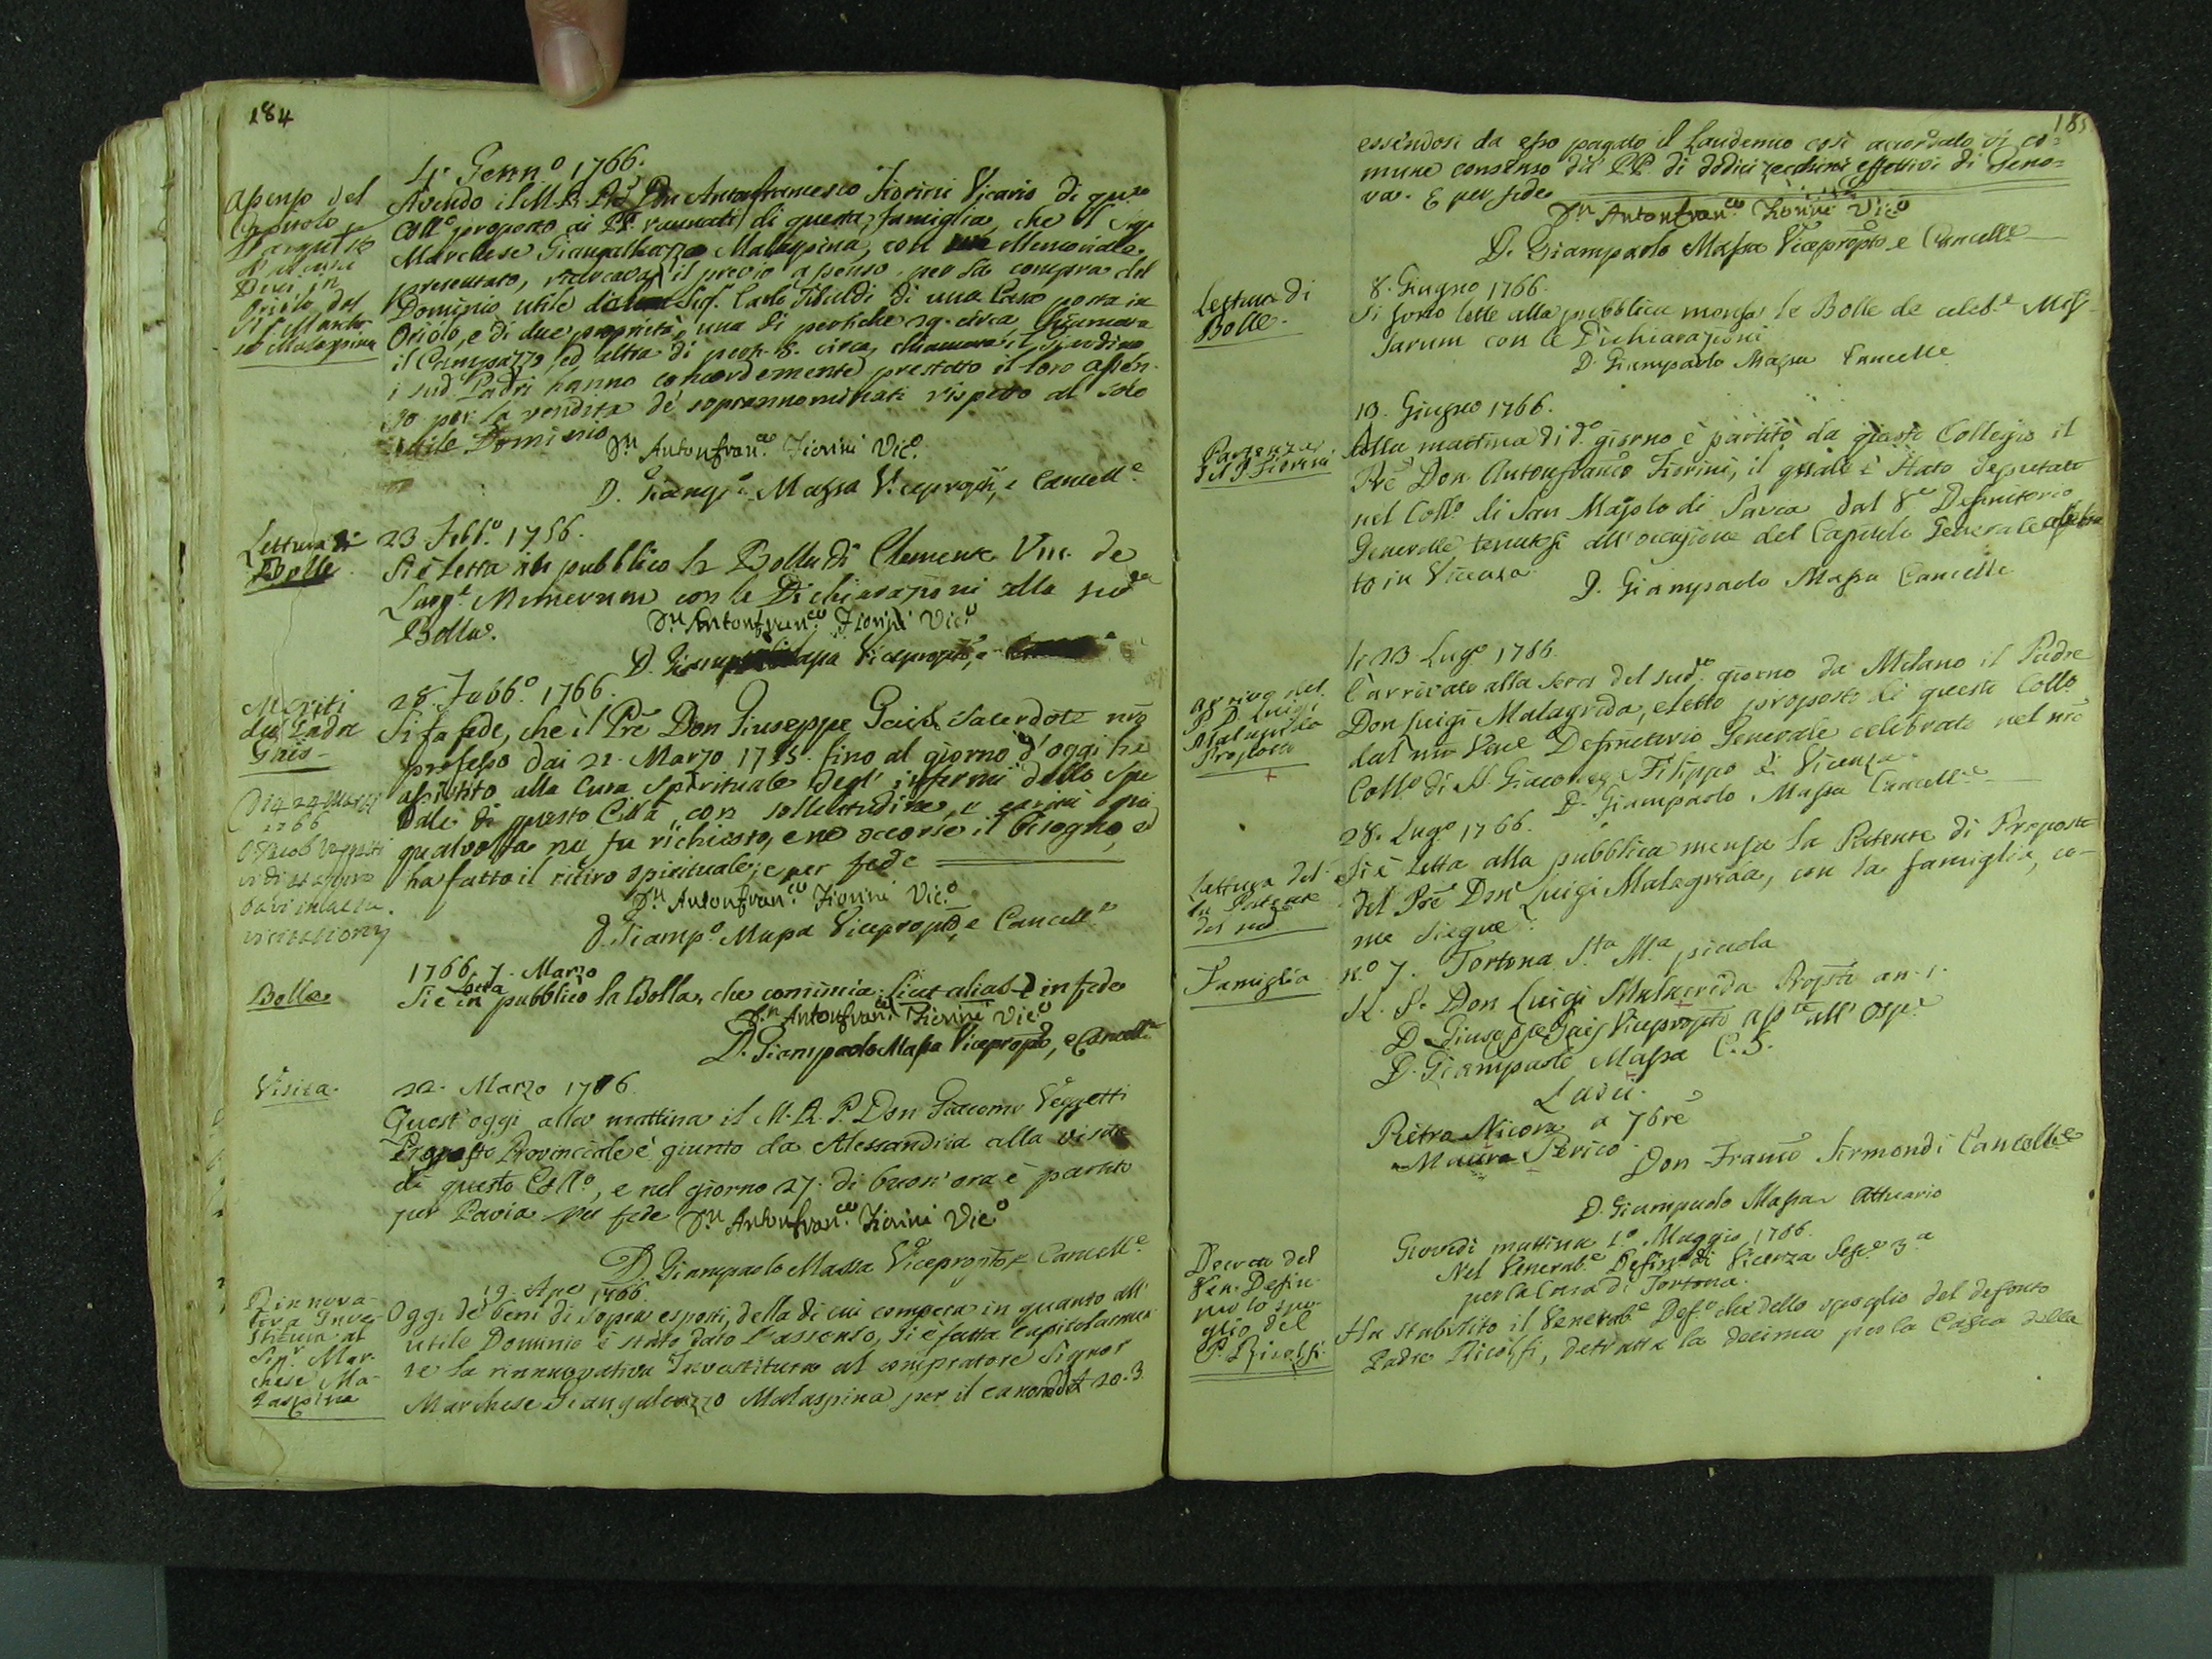 184
4. Genn.o 1766.
Assenso del
Capitolo
d'acquisto
Beni in
Oriolo dal
Sr. Marche
se Malaspina
Avendo il M. R. Pd. Don Antonfrancesco Fiorini Vicario di questo
Coll.o proposto ai PP. raunati di questa famiglia, che il Sigr
Marchese Giangalеazzo Malaspina, con un Memoriale
presentato, ricercava il previo assenso per la compra del
Dominio utile dal Sigr. Carlo Tibaldi di una Casa posta in
Oriolo, e di due proprietà, una di pertiche 29. circa chiamata
il Campazzo, ed altra di pert. 8. circa, chiamata il Giardino
i sud. Padri hanno concordemente prestato il loro assen-
so per la vendita de' soprannominati rispetto al solo
utile Dominio
Dn. Antonfran.co Fiorini Vic.o
D. Giamp.o Massa Viceprop.to, e Cancell.e
Lettura di
Bolle
23. Febb.o 1766.
Si è letta in pubblico la Bolla di Clemente VIII. de
Larg.e Munerum con le Dichiarazioni alla sud.a
Bolla.
Dn. Antonfran.co Fiorini Vic.o
D. Giamp Massa Viceprop.to, e
Meriti
del Padre
Gais
28. Febb.o 1766.
Si fa fede, che il Pre Don Giuseppe Gais Sacerdote nro
professo dai 21. Marzo 1755. fino al giorno d'oggi ha
assistito alla Cura Spirituale degl' infermi dello Spe
dale di questa Città, con sollecitudine, e carità ogni
qualvolta ne fu richiesto, e ne occorse il bisogno, ed
ha fatto il ritiro spirituale; e per fede
Die 24 Marzi
1766
visitationis
Dn. Antonfran.co Fiorini Vic.o
D. Giamp.o Massa Viceprop.to, e Cancell.e
1766. 7. Marzo
Bolla
Letta
Si è in pubblico la Bolla, che comincia: Sicut alias. e in fede
Dn. Antonfran.co Fiorini Vic.o
D. Giampaolo Massa Viceprop.to, e Cancell.e
Visita.
22. Marzo 1766.
Quest' oggi alla mattina il M. R. P. Don Giacomo Veggetti
Proposto Provinciale è giunto da Alessandria alla visita
di questo Coll.o, e nel giorno 27. di buon' ora è partito
per Pavia per fede
Dn. Antonfran.co Fiorini Vic.o
D. Giampaolo Massa Viceprop.to, e Cancell.e
19. Ape 1766.
Rinnova-
tiva Inve-
stitura al
Sigr. Mar-
chese Ma-
laspina
Oggi de' beni di sopra esposti, della di cui compera in quanto all'
utile Dominio è stato dato l'assenso, si è fatta capitolarmen
te la rinnovativa Investitura al compratore Signor
Marchese Giangaleazzo Malaspina per il canone di £ 20. 3.
185
essendosi da esso pagato il Laudemio così accordato di co=
mune consenso dei PP. di dodici zecchini effettivi di Geno=
va. E per fede
Dn. Antonfran.co Fiorini Vic.o
D. Giampaolo Massa Viceprop.to e Cancell.e
Lettura di
Bolle.
8. Giugno 1766.
Si sono lette alla pubblica mensa le Bolle de celeb.e Mis-
sarum con le Dichiarazioni
D. Giampaolo Massa Cancelle
Partenza
del P. Fiorini
10. Giugno 1766.
Alla mattina di d.o giorno è partito da questo Collegio il
Pre Don Antonfranco Fiorini, il quale è stato deputato
nel Coll.o di San Majolo di Pavia dal V.e Definitorio
Generalle tenutosi all' occasione del Capitolo Generale celebra
to in Vicenza.
D. Giampaolo Massa Cancelle
Arrivo del
P. D. Luigi
Malagrida
Proposto
+
li 23. Lug.o 1766.
È arrivato alla sera del sud.o giorno da Milano il Padre
Don Luigi Malagrida, eletto proposto di questo Collo
dal nro Vene Definitorio Generale celebrato nel nro
Coll.o di S. Giacomo, e Filippo di Vicenza.
D. Giampaolo Massa Cancell.e
Lettura del
la Patente
del sud.
28. Lug.o 1766.
Si è letta alla pubblica mensa la Patente di Proposto
del Pre Don Luigi Malagrida, con la famiglia, co-
me siegue.
Famiglia
n.o 7. Tortona S.ta M.a piccola
M. P. Don Luigi Malagrida Prop.to an. 1.
D. Giuseppe Gais Viceprop.to Ass.te all' Osp.e
D. Giampaolo Massa C. S.
Laici.
Pietro Nicora a 7bre
Mauro Perico
Don Franco Sirmondi Cancell.e
D. Giampaolo Massa Attuario
Decreto del
Ven. Defin.
per lo spo-
glio del
P. Ricolfi.
Giovedì mattina 1.o Maggio 1766.
Nel Venerab.e Defin.o di Vicenza Sess.e 3.a
per la Casa di Tortona.
Ha stabilito il Venerab.e Def.o che dello spoglio del defonto
Padre Ricolfi, detratta la decima per la Cassa della